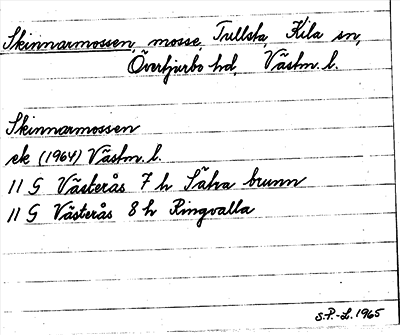 Skinnarmossen, mosse, Tullsta, Kila sn,
Övertjurbo hd, Västm. l.
Skinnarmossen
ek (1964) Västm. l.
11 G Västerås 7 h Sätra brunn
11 G Västerås 8 h Ringvalla
S.P.-L. 1965